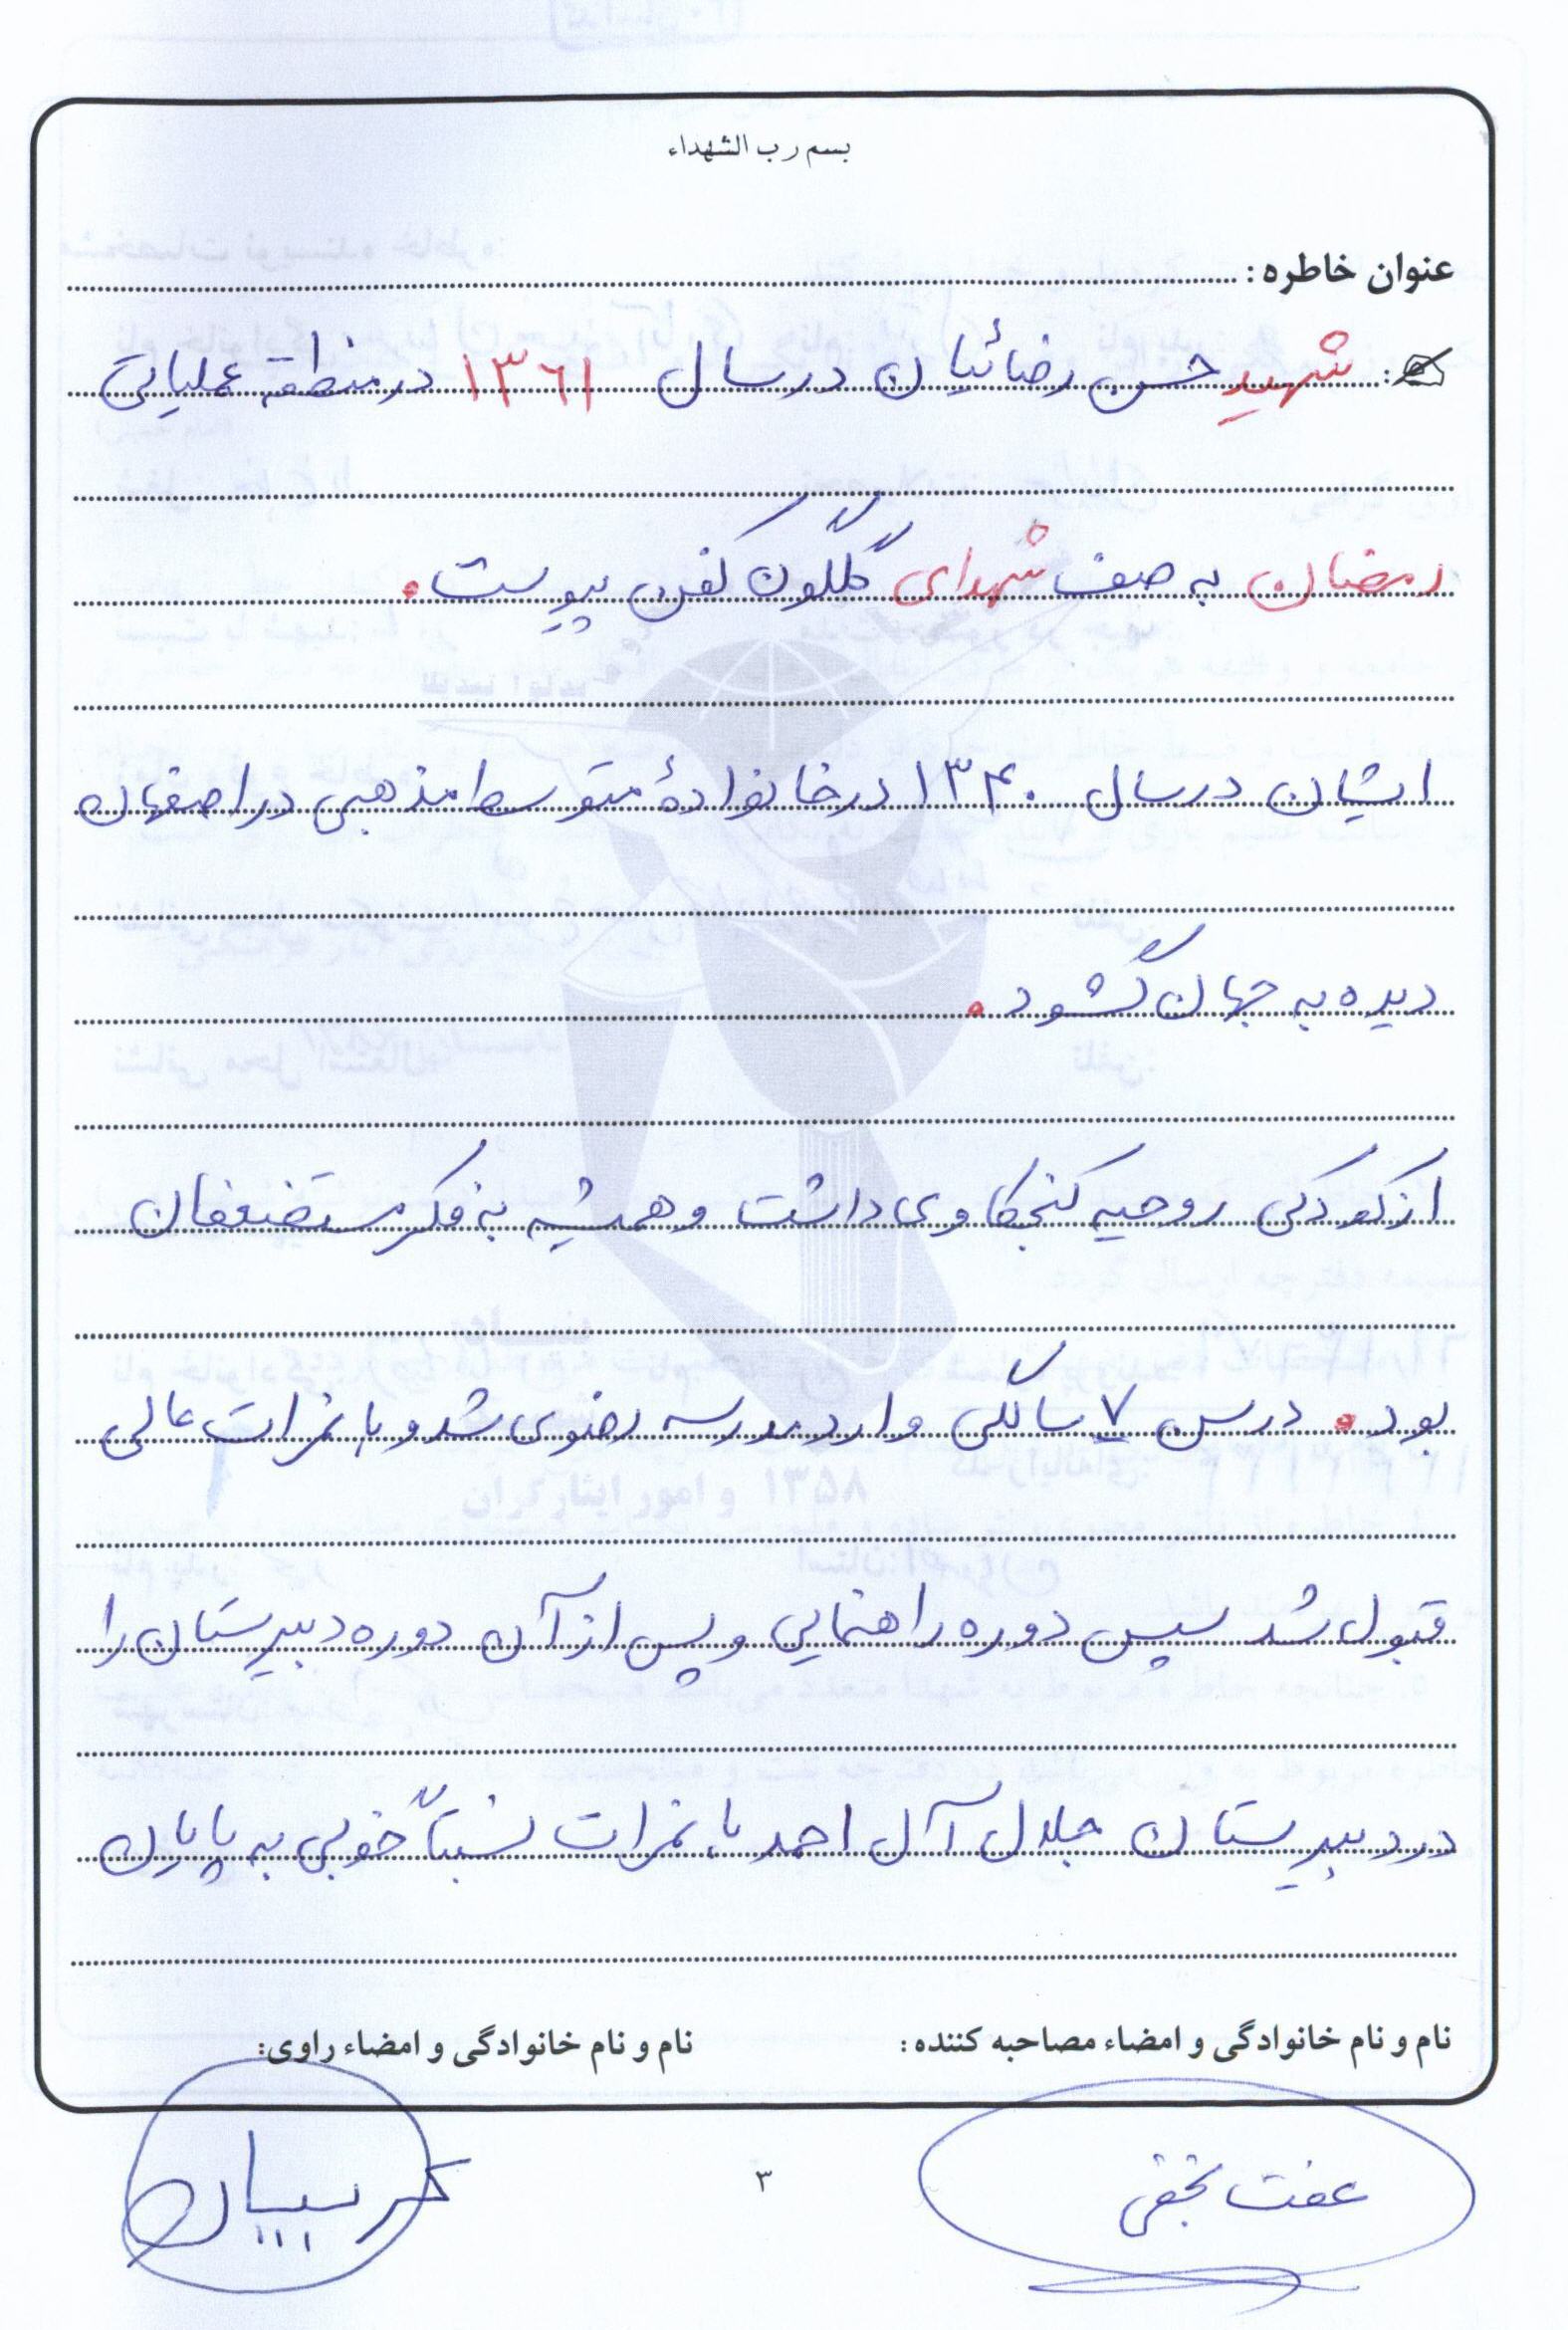 بسم رب الشهداء
عنوان خاطره:
شهید حسن رضائیان در سال ۱۳۶۱ در منطقه عملیاتی
رمضان به صف شهدای گلگون کفن پیوست.
ایشان در سال ۱۳۴۰ در خانوادهٔ متوسط مذهبی در اصفهان
دیده به جهان گشود.
از کودکی روحیه کنجکاوی داشت و همیشه به فکر مستضعفان
بود. در سن ۷ سالگی وارد مدرسه رضوی شد و با نمرات عالی
قبول شد سپس دوره راهنمایی و پس از آن دوره دبیرستان را
در دبیرستان جلال آل احمد با نمرات نسبتاً خوبی به پایان
نام و نام خانوادگی و امضاء مصاحبه کننده: نام و نام خانوادگی و امضاء راوی:
عفت نجفی
۳